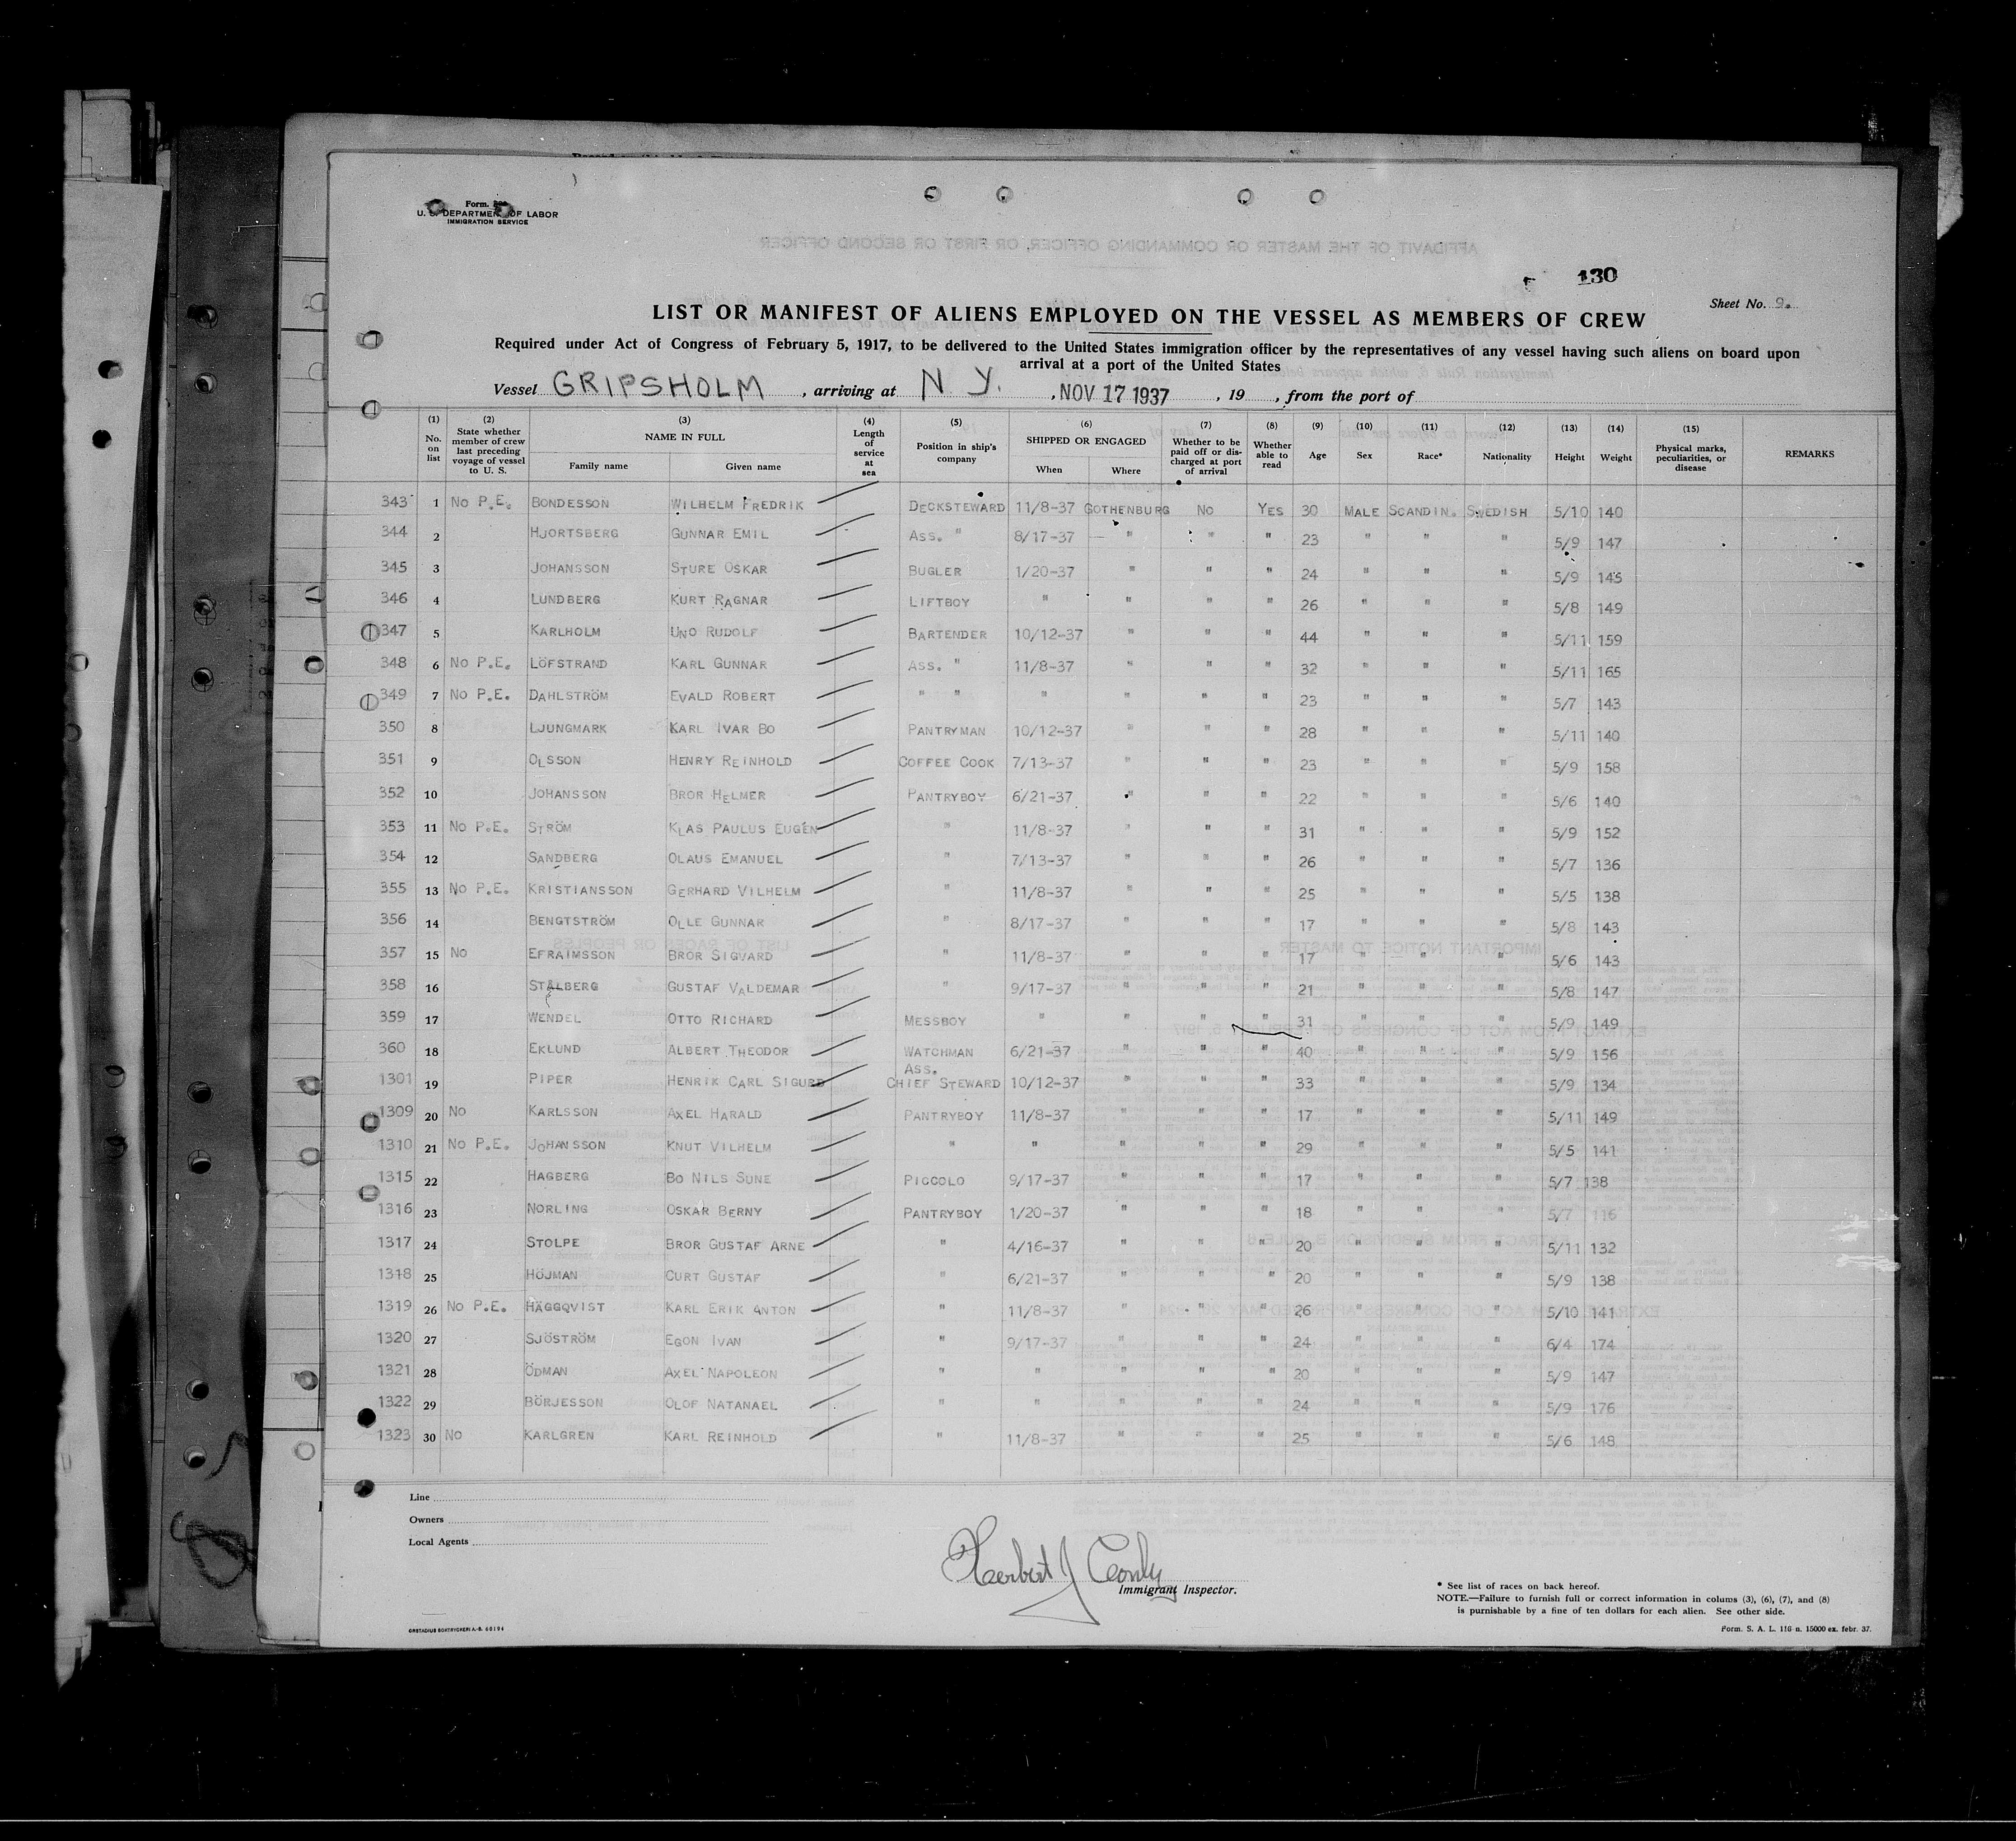 Form.
U. S. DEPARTMENT OF LABOR
IMMIGRATION SERVICE
130
Sheet No. 9.
LIST OR MANIFEST OF ALIENS EMPLOYED ON THE VESSEL AS MEMBERS OF CREW
Required under Act of Congress of February 5, 1917, to be delivered to the United States immigration officer by the representatives of any vessel having such aliens on board upon
arrival at a port of the United States
Vessel GRIPSHOLM, arriving at N Y., NOV 17 1937, 19 , from the port of
(1) No. on list (2) State whether member of crew last preceding voyage of vessel to U. S. (3) NAME IN FULL Family name Given name (4) Length of service at sea (5) Position in ship's company (6) SHIPPED OR ENGAGED When Where (7) Whether to be paid off or discharged at port of arrival (8) Whether able to read (9) Age (10) Sex (11) Race* (12) Nationality (13) Height (14) Weight (15) Physical marks, peculiarities, or disease REMARKS
343 1 No P.E. BONDESSON WILHELM FREDRIK DECKSTEWARD 11/8-37 GOTHENBURG No YES 30 MALE SCANDIN. SWEDISH 5/10 140
344 2 HJORTSBERG GUNNAR EMIL Ass. " 8/17-37 " " " 23 " " " 5/9 147
345 3 JOHANSSON STURE OSKAR BUGLER 1/20-37 " " " 24 " " " 5/9 145
346 4 LUNDBERG KURT RAGNAR LIFTBOY " " " " 26 " " " 5/8 149
347 5 KARLHOLM UNO RUDOLF BARTENDER 10/12-37 " " " 44 " " " 5/11 159
348 6 No P.E. LÖFSTRAND KARL GUNNAR Ass. " 11/8-37 " " " 32 " " " 5/11 165
349 7 No P.E. DAHLSTRÖM EVALD ROBERT " " " " " " 23 " " " 5/7 143
350 8 LJUNGMARK KARL IVAR BO PANTRYMAN 10/12-37 " " " 28 " " " 5/11 140
351 9 OLSSON HENRY REINHOLD COFFEE COOK 7/13-37 " " " 23 " " " 5/9 158
352 10 JOHANSSON BROR HELMER PANTRYBOY 6/21-37 " " " 22 " " " 5/6 140
353 11 No P.E. STRÖM KLAS PAULUS EUGÉN " 11/8-37 " " " 31 " " " 5/9 152
354 12 SANDBERG OLAUS EMANUEL " 7/13-37 " " " 26 " " " 5/7 136
355 13 No P.E. KRISTIANSSON GERHARD VILHELM " 11/8-37 " " " 25 " " " 5/5 138
356 14 BENGTSTRÖM OLLE GUNNAR " 8/17-37 " " " 17 " " " 5/8 143
357 15 No EFRAIMSSON BROR SIGVARD " 11/8-37 " " " 17 " " " 5/6 143
358 16 STÅLBERG GUSTAF VALDEMAR " 9/17-37 " " " 21 " " " 5/8 147
359 17 WENDEL OTTO RICHARD MESSBOY " " " " 31 " " " 5/9 149
360 18 EKLUND ALBERT THEODOR WATCHMAN 6/21-37 " " " 40 " " " 5/9 156
1301 19 PIPER HENRIK CARL SIGURD ASS. CHIEF STEWARD 10/12-37 " " " 33 " " " 5/9 134
1309 20 No KARLSSON AXEL HARALD PANTRYBOY 11/8-37 " " " 17 " " " 5/11 149
1310 21 No P.E. JOHANSSON KNUT VILHELM " " " " " 29 " " " 5/5 141
1315 22 HAGBERG BO NILS SUNE PICCOLO 9/17-37 " " " 17 " " " 5/7 138
1316 23 NORLING OSKAR BERNY PANTRYBOY 1/20-37 " " " 18 " " " 5/7 116
1317 24 STOLPE BROR GUSTAF ARNE " 4/16-37 " " " 20 " " " 5/11 132
1318 25 HÖJMAN CURT GUSTAF " 6/21-37 " " " 20 " " " 5/9 138
1319 26 No P.E. HÄGGQVIST KARL ERIK ANTON " 11/8-37 " " " 26 " " " 5/10 141
1320 27 SJÖSTRÖM EGON IVAN " 9/17-37 " " " 24 " " " 6/4 174
1321 28 ÖDMAN AXEL NAPOLEON " " " " " 20 " " " 5/9 147
1322 29 BÖRJESSON OLOF NATANAEL " " " " " 24 " " " 5/9 176
1323 30 No KARLGREN KARL REINHOLD " 11/8-37 " " " 25 " " " 5/6 148
Line
Owners
Local Agents
Herbert J
Immigrant Inspector.
* See list of races on back hereof.
NOTE.—Failure to furnish full or correct information in colums (3), (6), (7), and (8)
is punishable by a fine of ten dollars for each alien. See other side.
Form. S. A. L. 116 n. 15000 ex. febr. 37.